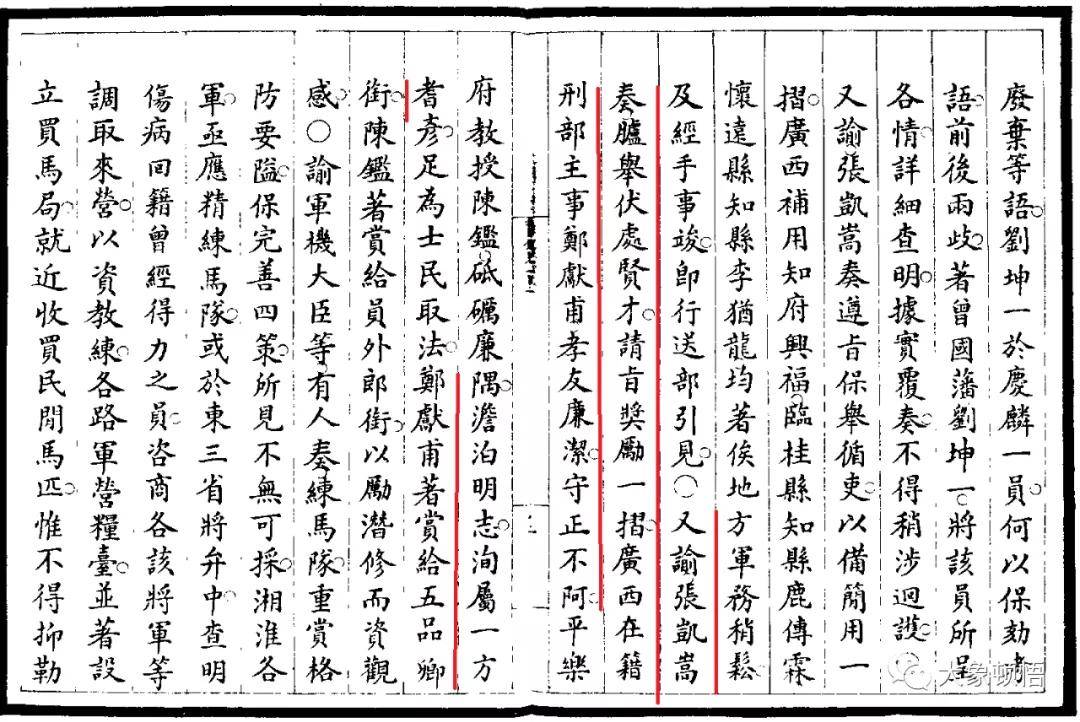 廢棄等語。劉坤一於慶麟一員。何以保劾者
語。前後兩歧。著曾國藩劉坤一。將該員所呈
各情。詳細查明。據實覆奏。不得稍涉迴護。○
又諭張凱嵩奏遵旨保舉循吏。以備簡用一
摺。廣西補用知府興福。臨桂縣知縣鹿傳霖
懷遠縣知縣李猶龍。均著俟地方軍務稍鬆。
及經手事竣。即行送部引見。○又諭張凱嵩
奏臚舉伏處賢才。請旨獎勵一摺。廣西在籍
刑部主事鄭獻甫孝友廉潔。守正不阿。平樂
府教授陳鑑砥礪廉隅。澹泊明志。洵屬一方
耆彥。足為士民取法。鄭獻甫著賞給五品卿
銜。陳鑑著賞給員外郎銜。以勵潛修而資觀
感。○諭軍機大臣等。有人奏練馬隊。重賞格
防要隘。保完善四策。所見不無可採。湘淮各
軍。亟應精練馬隊。或於東三省將弁中。查明
傷病回籍曾經得力之員。咨商各該將軍等
調取來營。以資教練。各路軍營糧臺。並著設
立買馬局。就近收買民間馬匹。惟不得抑勒
大象顿悟